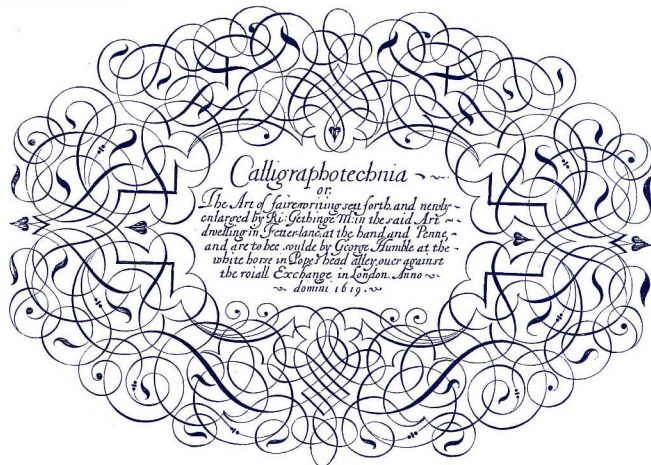 Calligraphotechnia
or
The Art of faire writing sett forth, and newly
enlarged by Ri: Gethinge Mr: in the said Art
dwelling in Fetter-lane, at the hand and Penne,
and are to bee soulde by George Humble at the
white horse in Popes head alley, ouer against
the roiall Exchange in London. Anno
domini 1619.